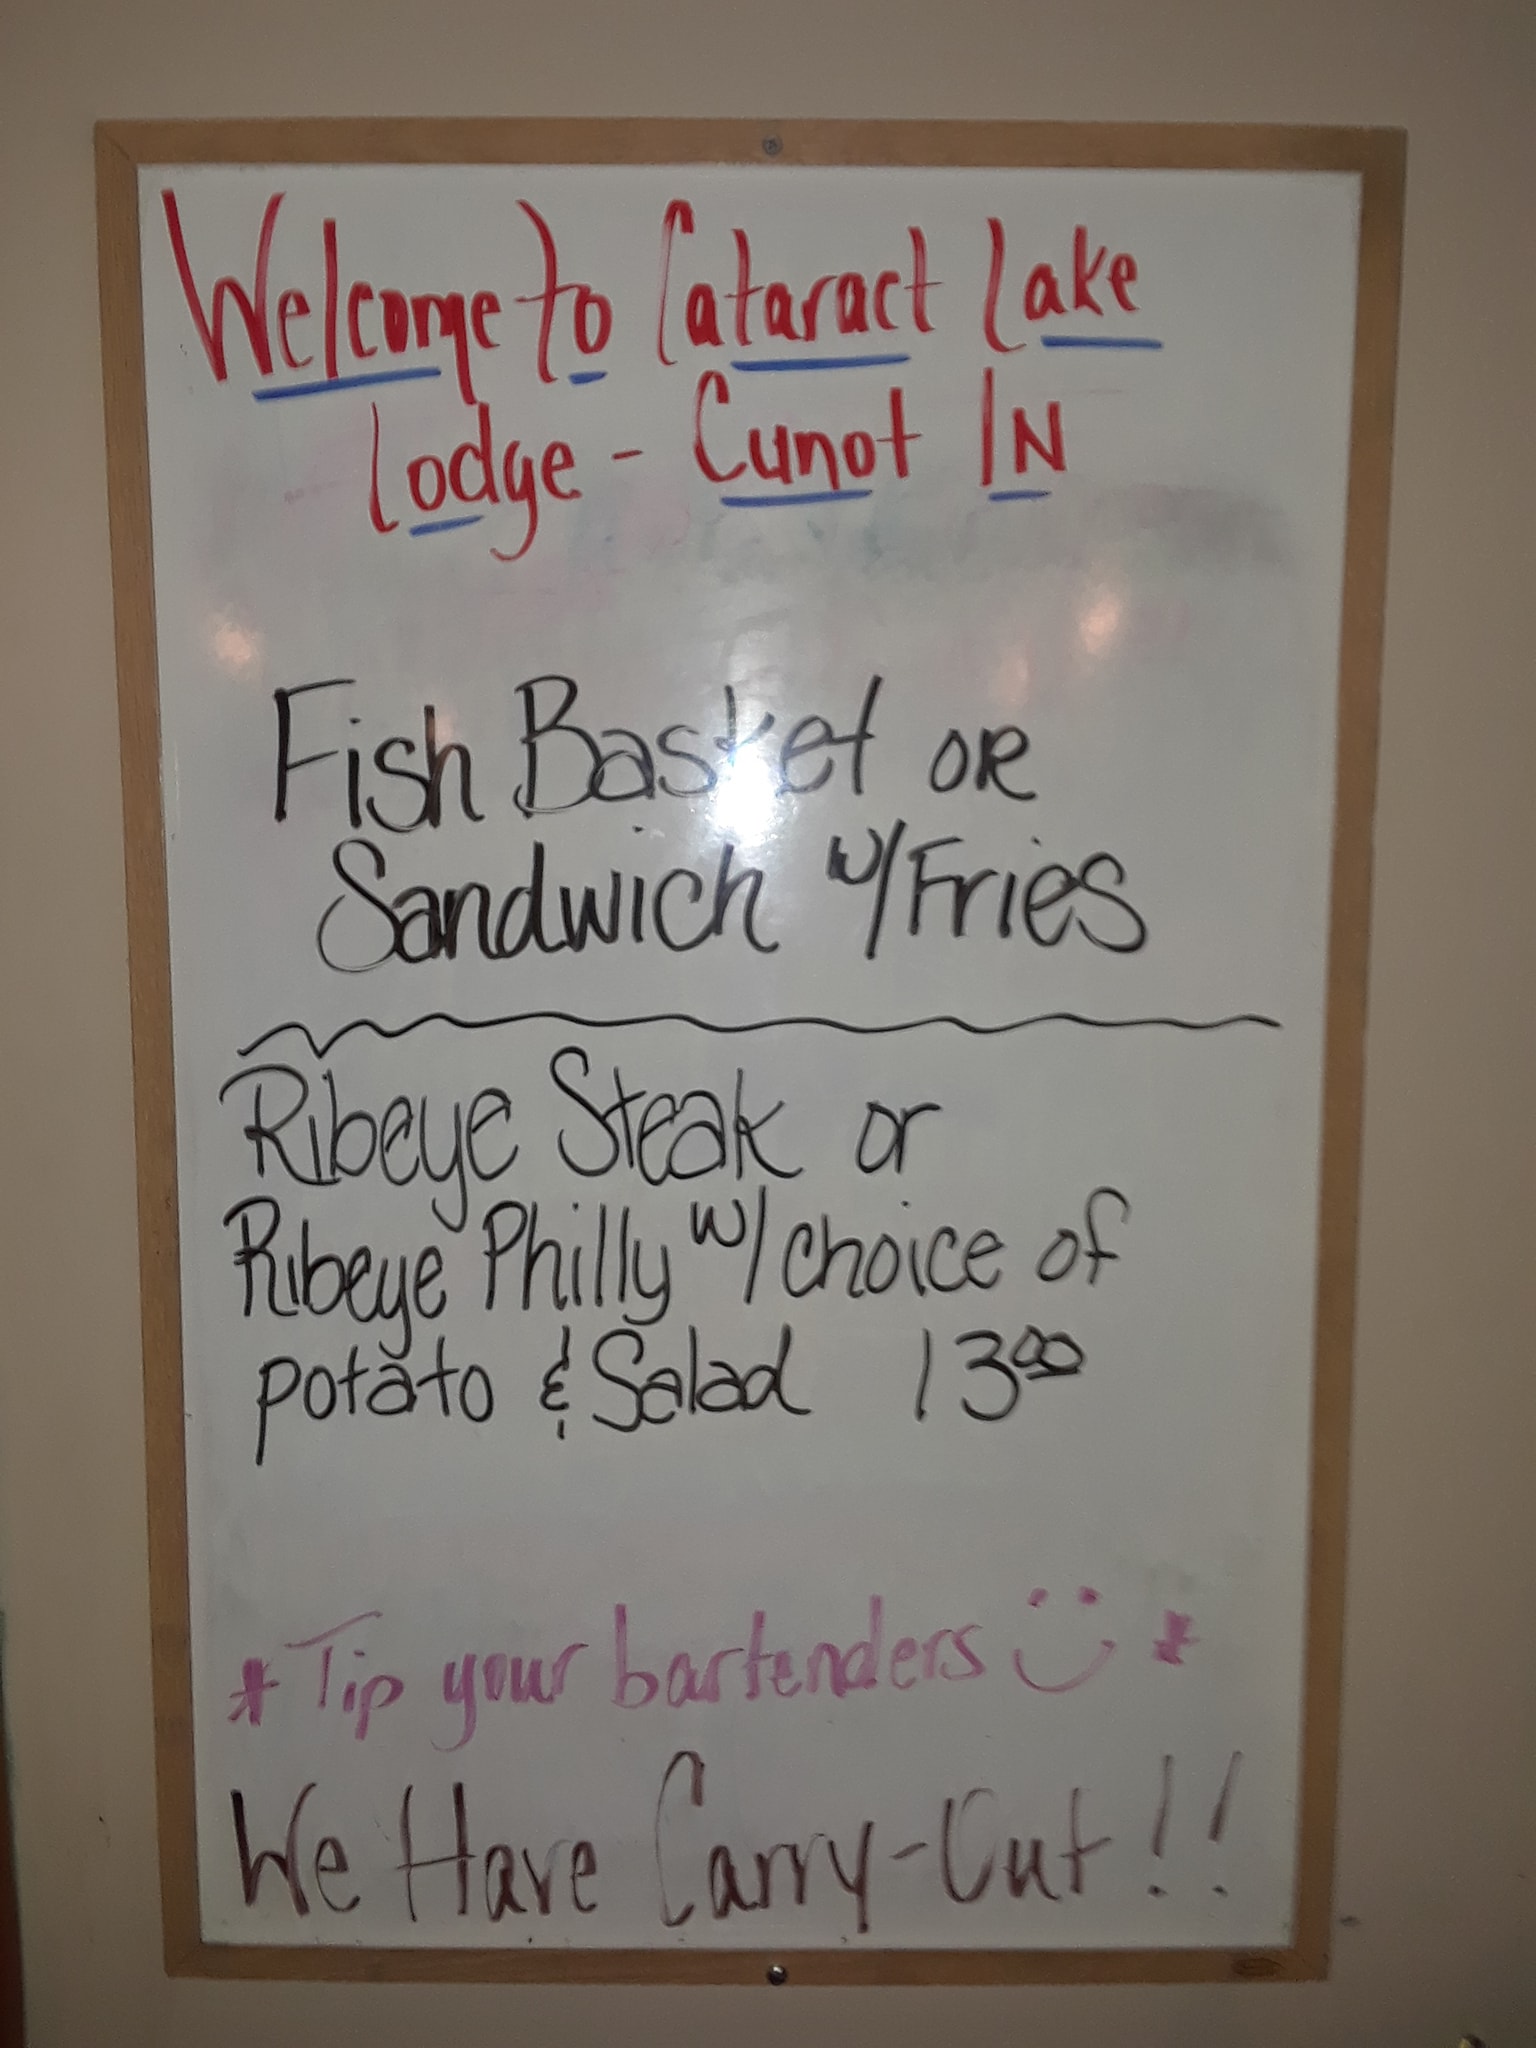 Welcome to Cataract Lake
Lodge - Cunot IN
Fish Basket OR
Sandwich w/ Fries
Ribeye Steak or
Ribeye Philly w/ choice of
potato & Salad 13⁰⁰
* Tip your bartenders :) *
We Have Carry-Out!!